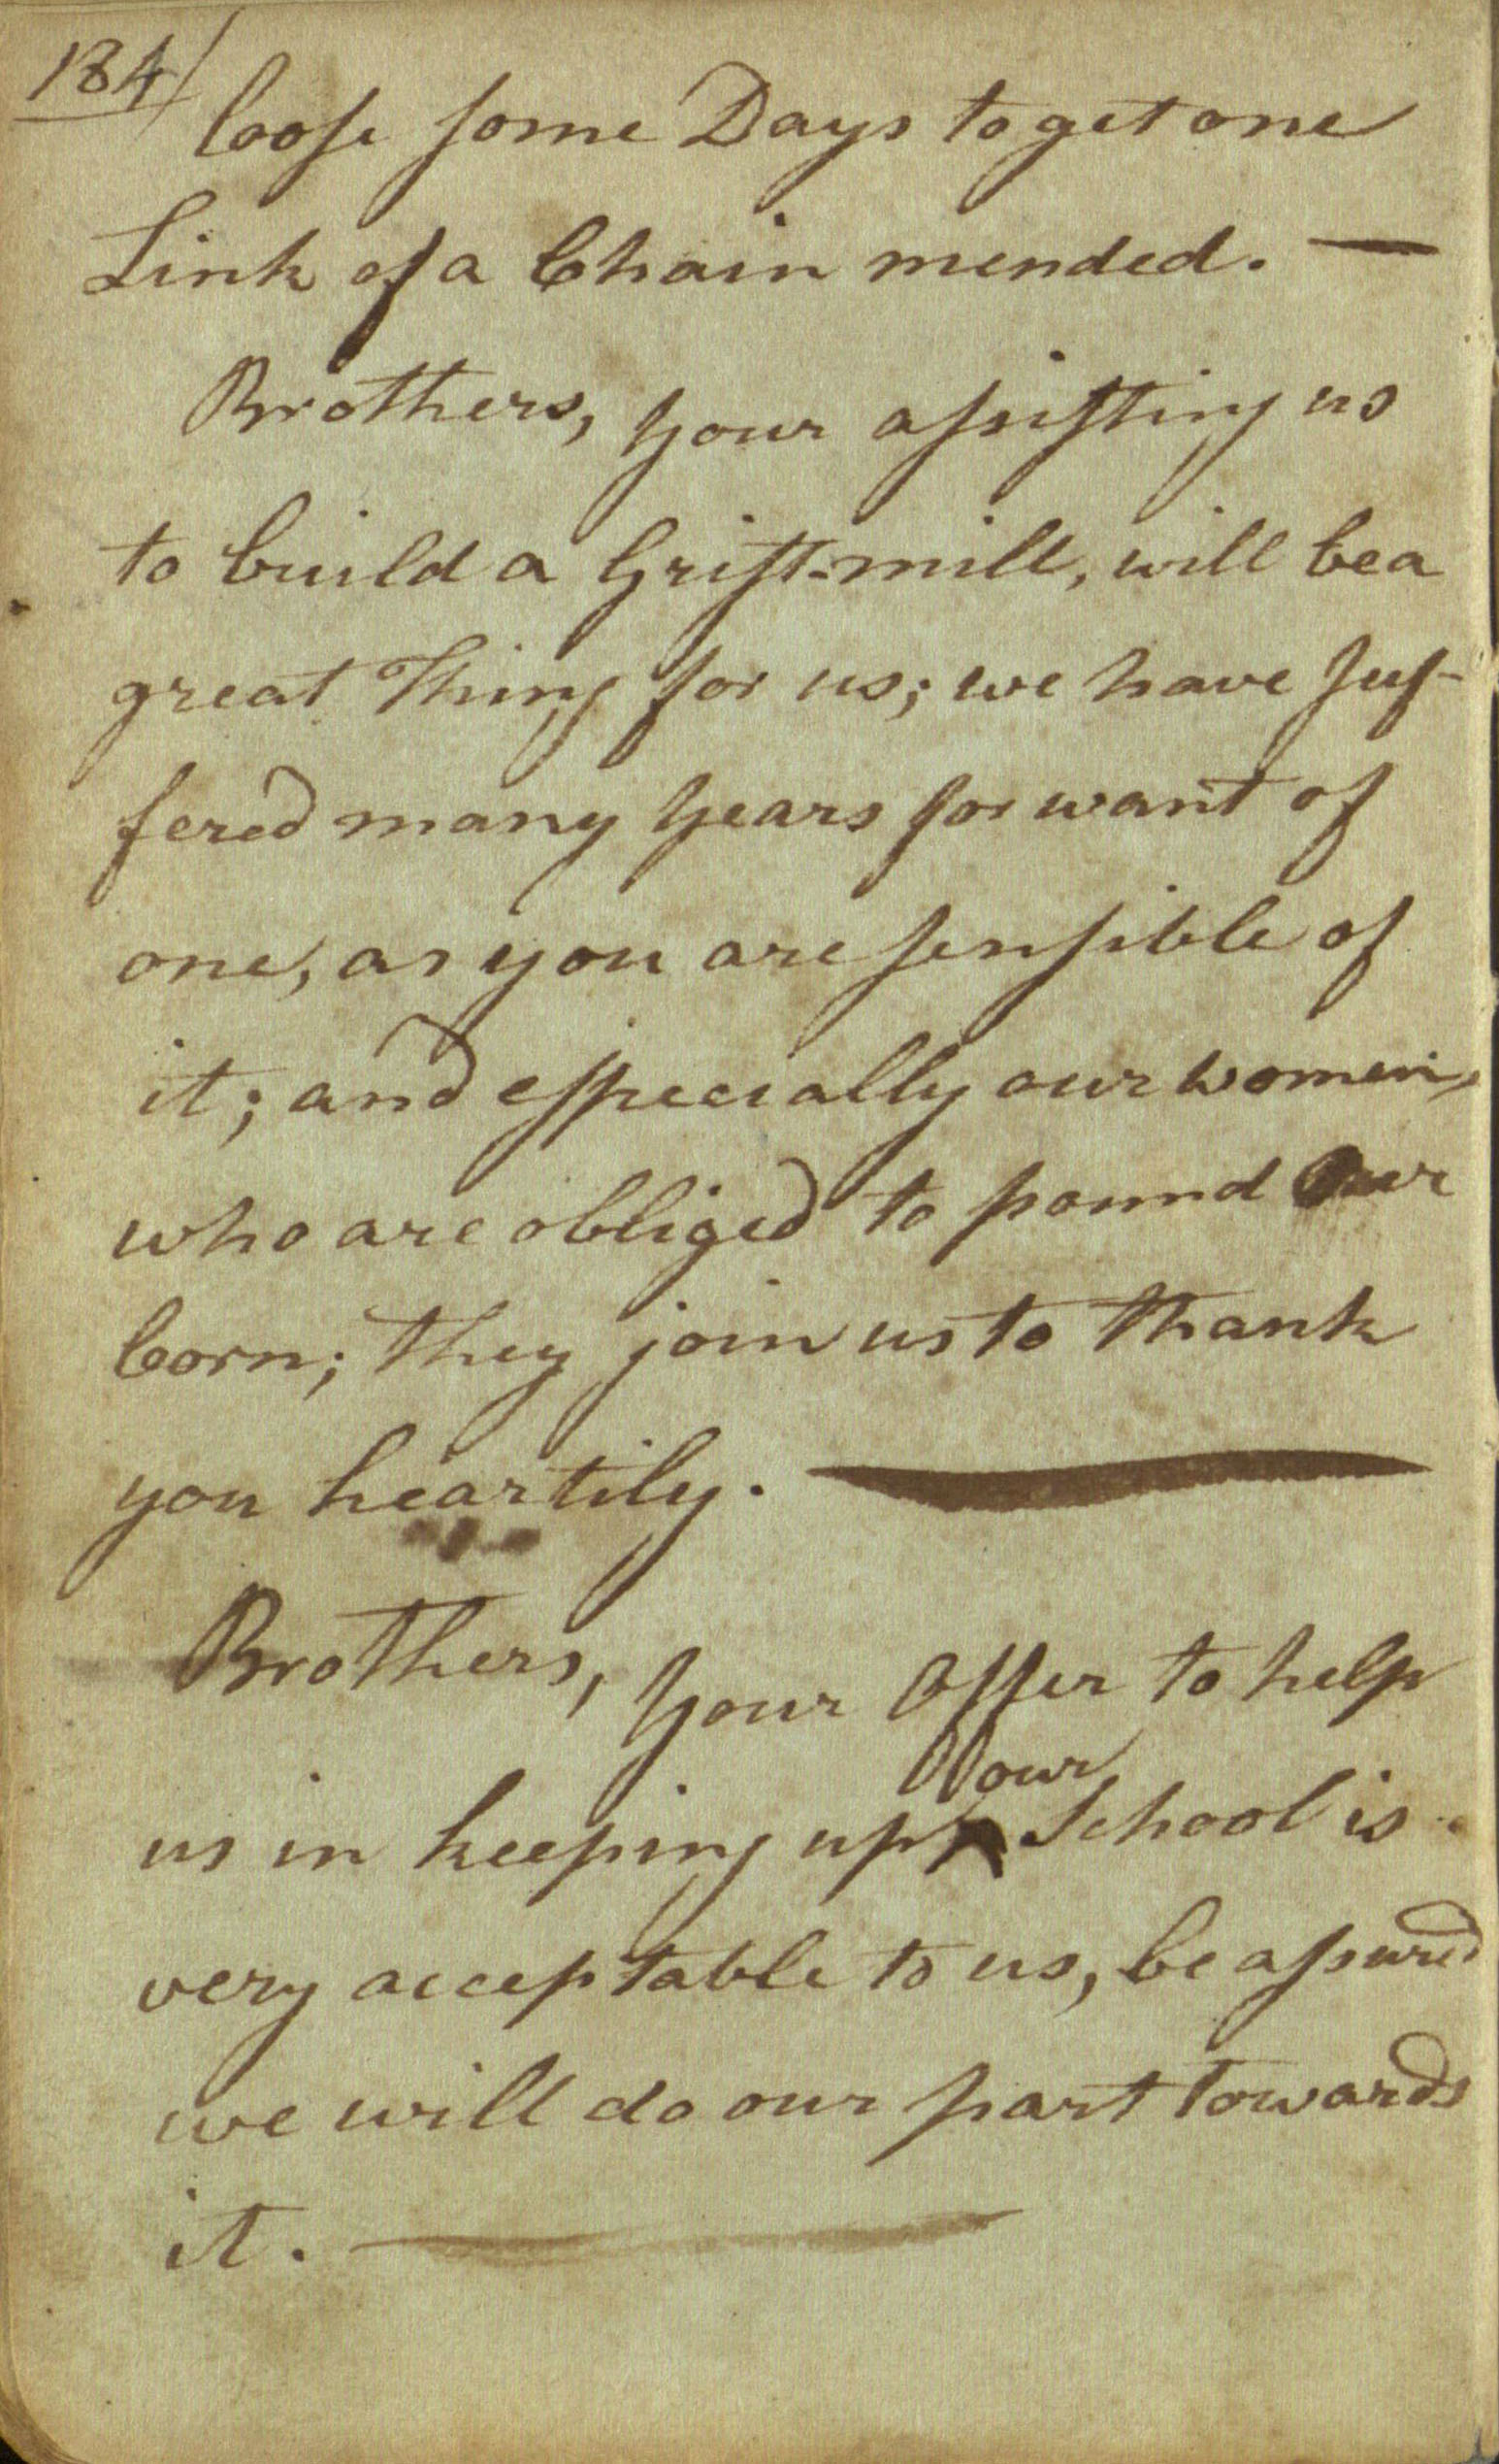 184/
loose some Days to get one
Link of a Chain mended. —
Brothers, your assisting us
to build a Grist-mill, will be a
great Thing for us; we have suf-
fered many years for want of
one, as you are sensible of
it; and especially our women,
who are obliged to pound our
Corn; they join us to thank
you heartily. —
Brothers, your Offer to help
our
us in keeping up School is
very acceptable to us, be assured
we will do our part towards
it. —